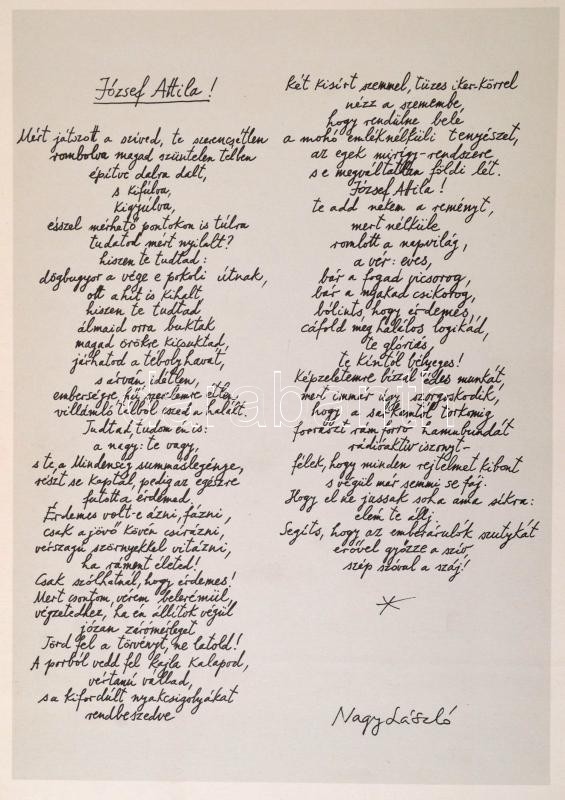 József Attila!
Mért játszott a szived, te szerencsétlen
rombolva magad szüntelen télben
építve dalra dalt,
s kifúlva,
kigyúlva,
ésszel mérhető pontokon is túlra
tudatod mért nyilalt?
hiszen te tudtad:
dögbugyor a vége e pokoli útnak,
ott a hit is kihalt
hiszen te tudtad
álmaid orra buktak
magad örökre kicsuktad,
járhatod a téboly havát,
s árván, étlen,
emberségre hű szerelemre étlen,
villámló tálból csend a halált.
Tudtad, tudom én is:
a nagy: te vagy,
s te, a Mindenség summáslegénye,
részt se kaptál, pedig az egészre
futotta érdemed.
Érdemes volt-e ázni, fázni,
csak a jövő kövén csirázni,
vérszagú szörnyekkel vitázni,
ha ráment életed!
Csak szólhatnál, hogy érdemes!
Mert csontom, vérem belerémül
végzetedhez, ha én állítok végül
józan zárómérleget
Törd fel a törvényt, ne latold!
A porból vedd fel kajla kalapod,
vértanú vállad,
s a kifordúlt nyakcsigolyákat
rendbeszedve
két kisírt szemmel, tüzes iker-körrel
nézz a szemembe,
hogy rendülne bele
a mohó emléknélküli tenyészet,
az egek mirigy-rendszere
s e megváltatlan földi lét.
József Attila!
te add nekem a reményt,
mert nélküle
romlott a napvilág,
a vér: eves,
bár a fogad vicsorog,
bár a nyakad csikorog,
bólints, hogy érdemes,
cáfold meg halálos logikád,
te glóriás,
te kíntól bélyeges!
Képzeletemre bízol édes munkát,
mert immár úgy szorgoskodik,
hogy a sarkamtól torkomig
forrázst rám forró hamubundát
rádióaktív iszonyt –
félek, hogy minden rejtelmet kibont
s végül már semmi se fáj.
Hogy el ne jussak soha ama síkra:
elém te állj.
Segíts, hogy az emberárulók szutykát
erővel győzze a szív,
szép szóval a száj!
Nagy László
darabanth